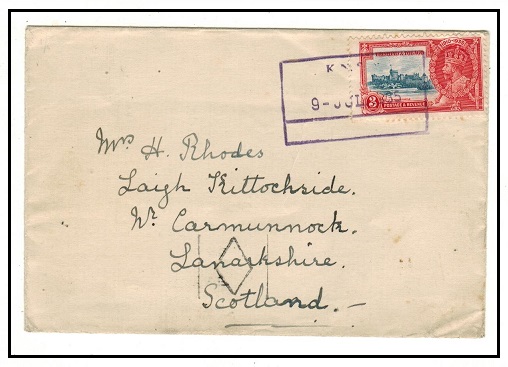 9-JUL 35
3
POSTAGE & REVENUE
Mrs H. Rhodes
Laigh Kittochside.
Nr. Carmunnock.
Lanarkshire.
Scotland. -